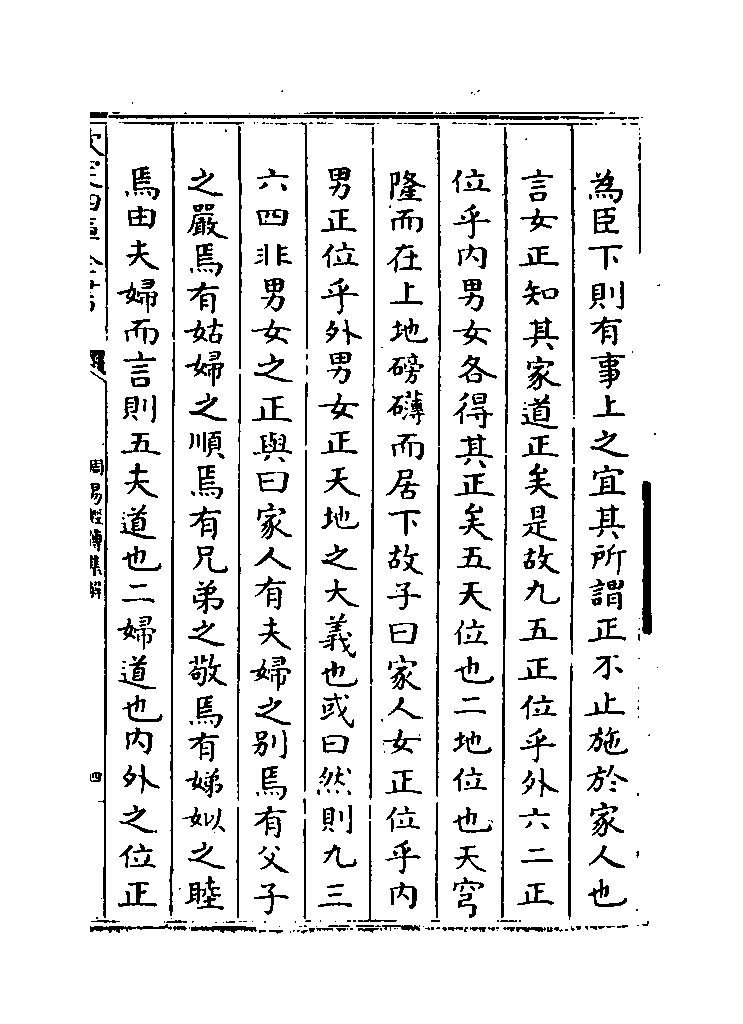 為臣下則有事上之宜其所謂正不止施於家人也
言女正知其家道正矣是故九五正位乎外六二正
位乎内男女各得其正矣五天位也二地位也天穹
隆而在上地磅礴而居下故子曰家人女正位乎内
男正位乎外男女正天地之大義也或曰然則九三
六四非男女之正與曰家人有夫婦之别焉有父子
之嚴焉有姑婦之順焉有兄弟之敬焉有娣姒之睦
焉由夫婦而言則五夫道也二婦道也内外之位正
欽定四庫全書
周易經傳集解
四